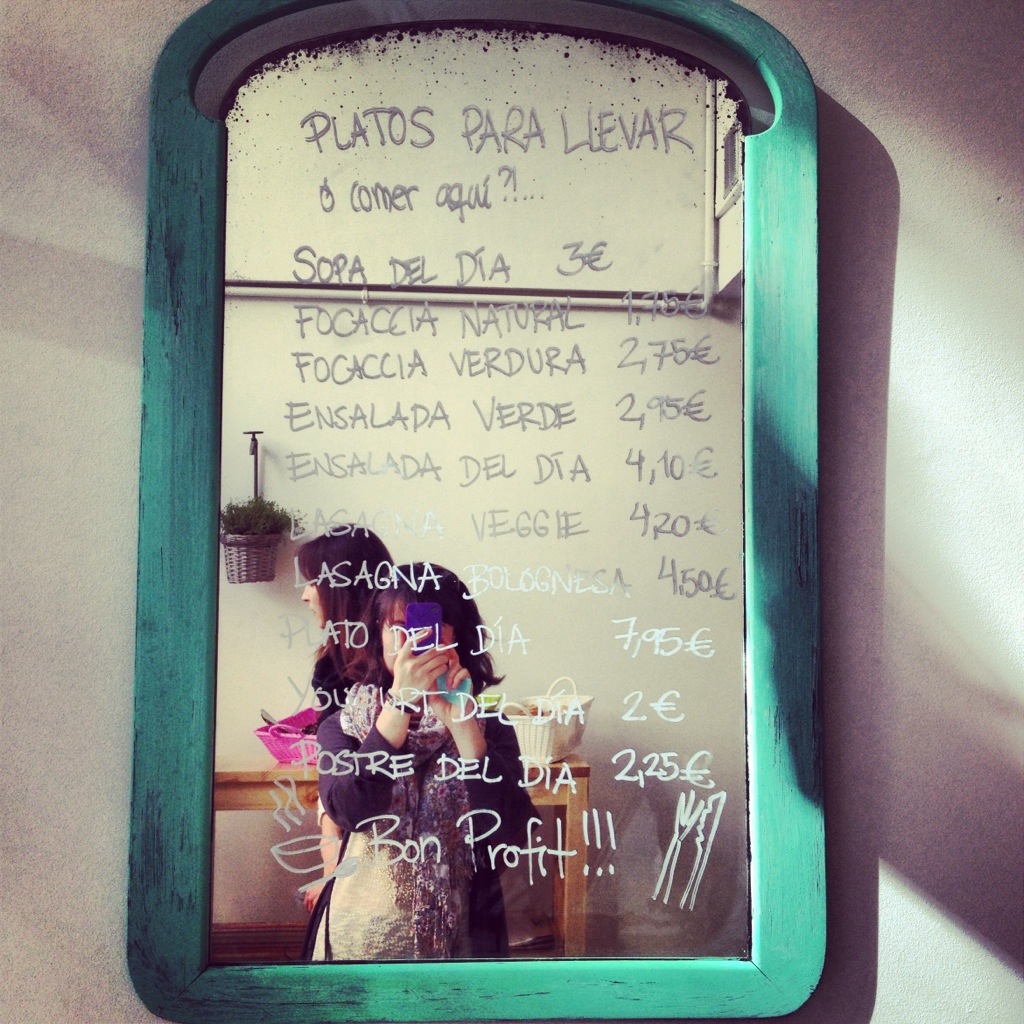 PLATOS PARA LLEVAR
ó comer aquí?!...
SOPA DEL DÍA 3€
FOCACCIA NATURAL 1,75€
FOCACCIA VERDURA 2,75€
ENSALADA VERDE 2,95€
ENSALADA DEL DÍA 4,10€
LASAGNA VEGGIE 4,20€
LASAGNA BOLOGNESA 4,50€
PLATO DEL DÍA 7,95€
YOGHURT DEL DÍA 2€
POSTRE DEL DÍA 2,25€
Bon Profit!!!